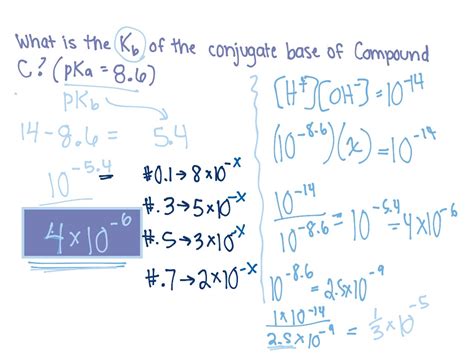 What is the Kb of the conjugate base of Compound
C? (pKa = 8.6)
pKb
14 - 8.6 = 5.4
10^-5.4
4 x 10^-6
#.0.1 → 8x10^-x
#.3 → 5x10^-x
#.5 → 3x10^-x
#.7 → 2x10^-x
[H+][OH-] = 10^-14
(10^-8.6)(x) = 10^-14
10^-14 / 10^-8.6 = 10^-5.4 = 4x10^-6
10^-8.6 = 2.5x10^-9
1x10^-14 / 2.5x10^-9 = 1/3 x 10^-5